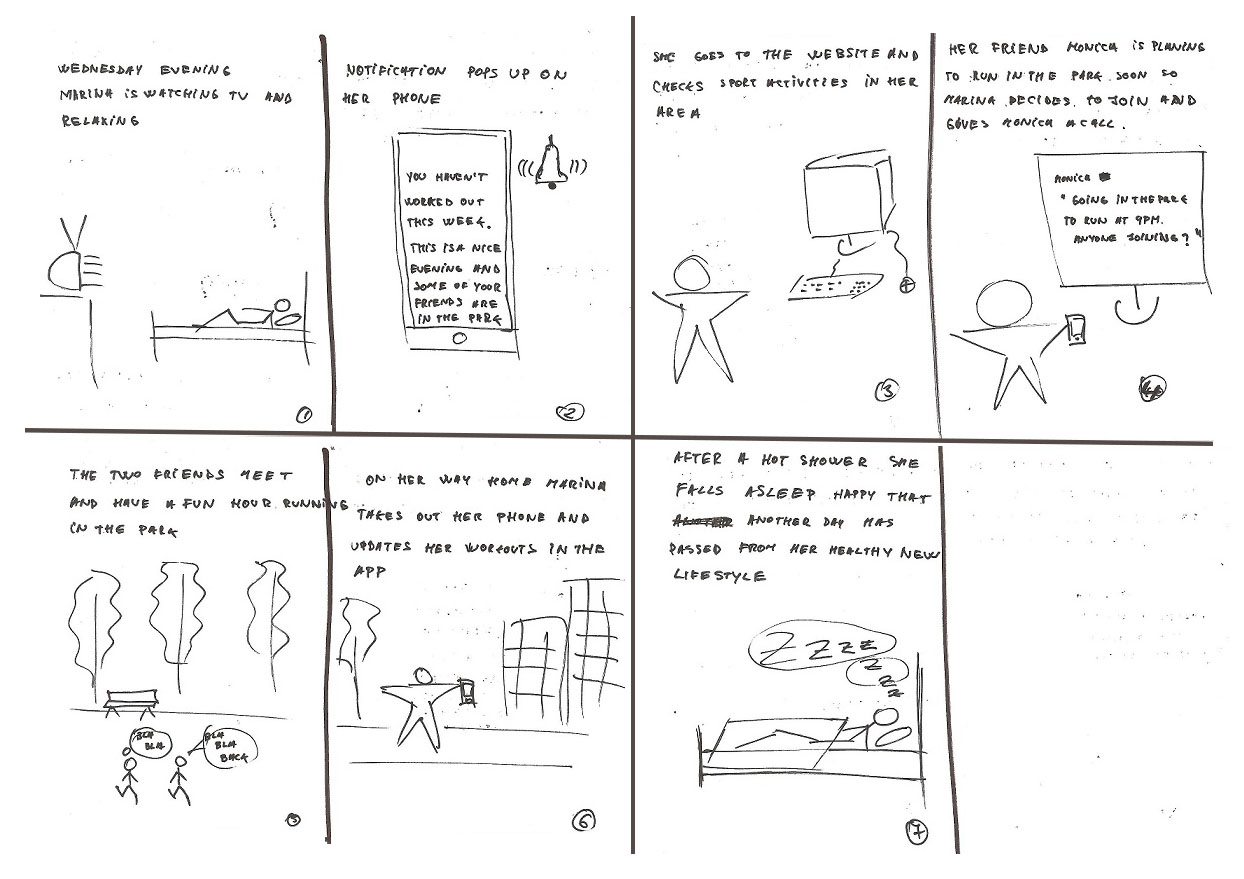 WEDNESDAY EVENING
MARINA IS WATCHING TV AND
RELAXING
1
NOTIFICATION POPS UP ON
HER PHONE
YOU HAVEN'T
WORKED OUT
THIS WEEK.
THIS IS A NICE
EVENING AND
SOME OF YOUR
FRIENDS ARE
IN THE PARK
2
SHE GOES TO THE WEBSITE AND
CHECKS SPORT ACTIVITIES IN HER
AREA
3
HER FRIEND MONICA IS PLANING
TO RUN IN THE PARK SOON SO
MARINA DECIDES TO JOIN AND
GIVES MONICA A CALL.
MONICA
"GOING IN THE PARK
TO RUN AT 9PM.
ANYONE JOINING?"
4
THE TWO FRIENDS MEET
AND HAVE A FUN HOUR RUNNING
IN THE PARK
BLA
BLA
BLA
BLA
5
ON HER WAY HOME MARINA
TAKES OUT HER PHONE AND
UPDATES HER WORKOUTS IN THE
APP
6
AFTER A HOT SHOWER SHE
FALLS ASLEEP HAPPY THAT
ANOTHER DAY HAS
PASSED FROM HER HEALTHY NEW
LIFESTYLE
Z Z Z Z
Z
Z
Z
7